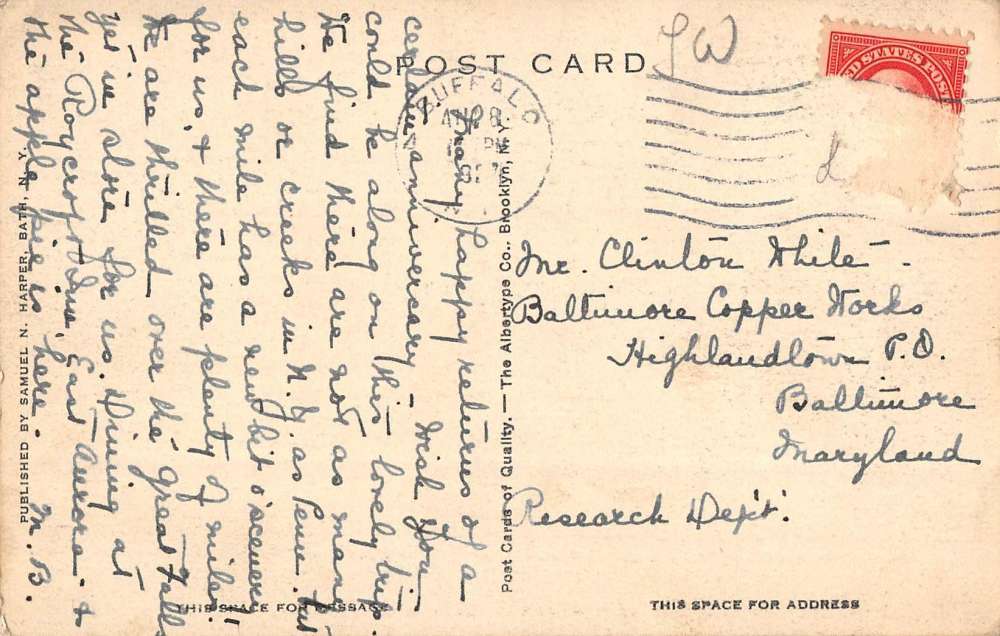 POST CARD
TW
UNITED STATES POST
BUFFALO
N.Y.
many happy returns of a
certain anniversary - Wish you
could be along on this lovely trip.
We find there are not as many
hills or creeks in N.Y. as Penn. but
each mile has a new bit o'scenery
for us, + there are plenty of miles!
We are thrilled over the "great Falls"
yet in store for us. Dining at
the Roycroft Inn, East Aurora - +
the apple pie is here. M. B.
PUBLISHED BY SAMUEL N. HARPER, BATH, N. Y.
THIS SPACE FOR MESSAGE
Post Cards of Quality. — The Albertype Co., Brooklyn, N. Y.
Mr. Clinton White -
Baltimore Copper Works
Highlandtown P.O.
Baltimore
Maryland
Research Dep't.
THIS SPACE FOR ADDRESS